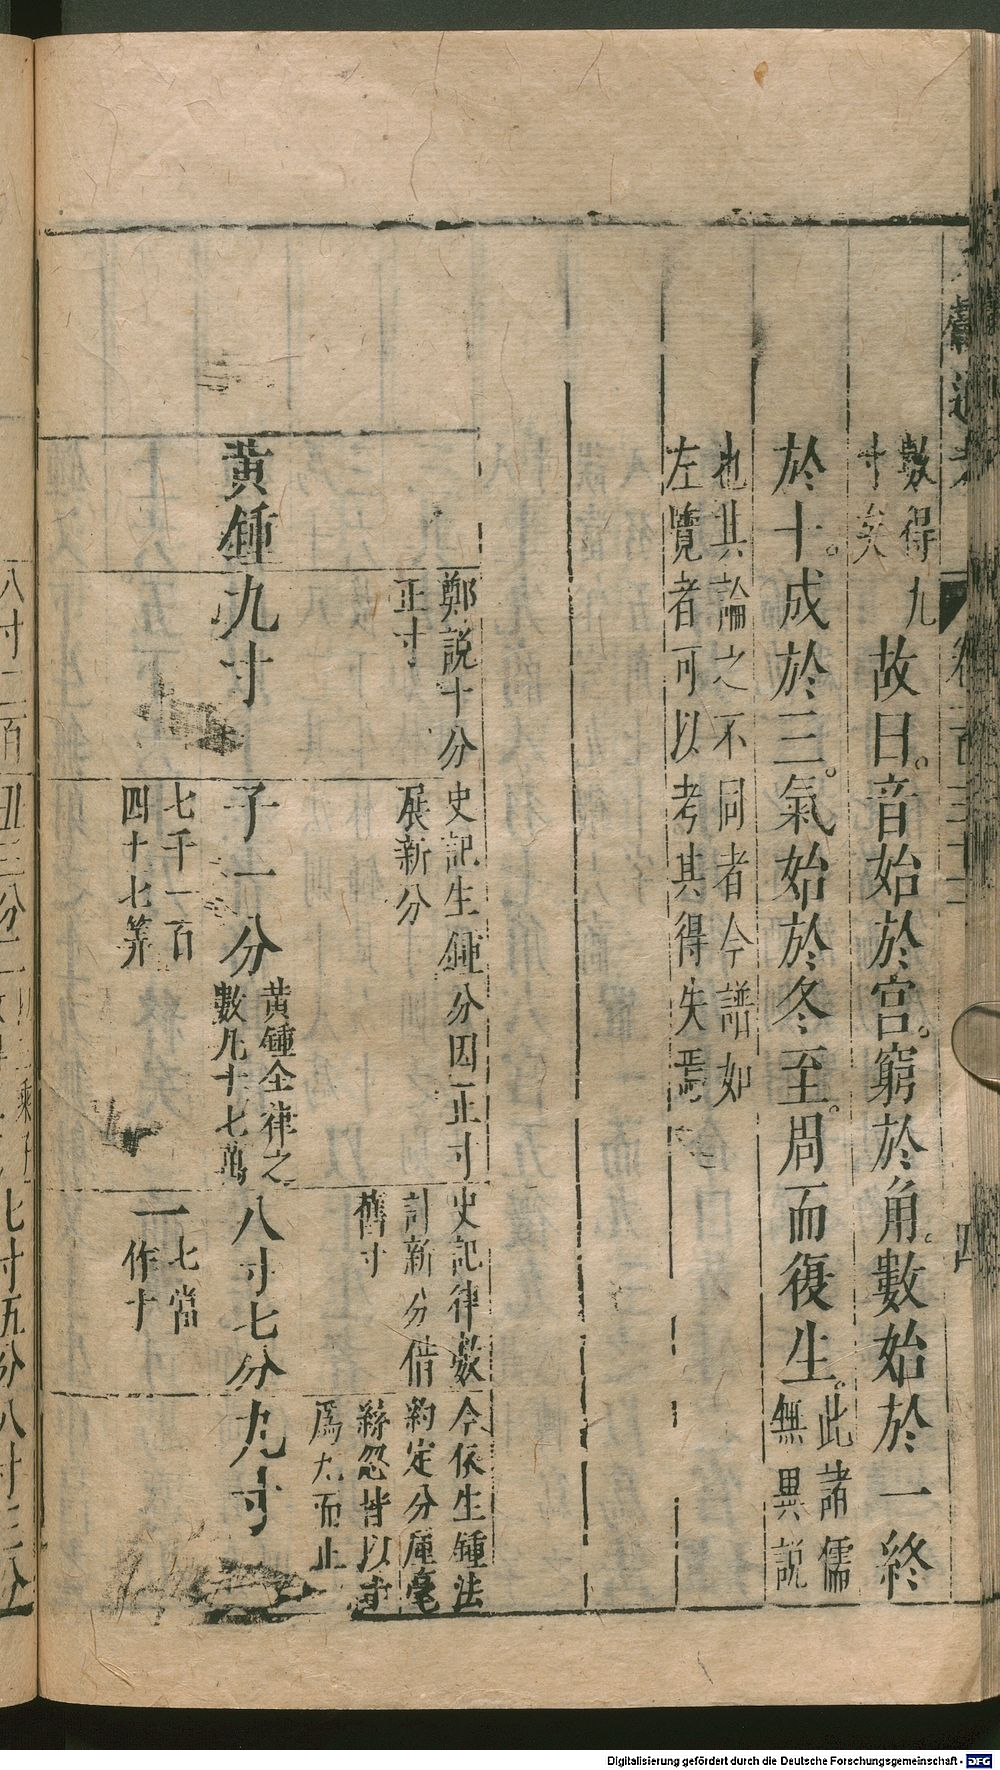 數得九
寸矣
故曰。音始於宮。窮於角。數始於一終
於十。成於三。氣始於冬至。周而復生。
此諸儒
無異説
也其論之不同者今譜如
左覽者可以考其得失焉
鄭説十分
正寸
史記生鍾分因正寸
展新分
史記律數
計新分借
舊寸
今依生鍾法
約定分厘毫
絲忽皆以
爲九而止
黃鍾
九寸
子一分
黃鍾全律之
數凡十七萬
七千一百
四十七筭
八寸七分
一
七當
作十
九寸
八寸二百
七寸五分
Digitalisierung gefördert durch die Deutsche Forschungsgemeinschaft - DFG